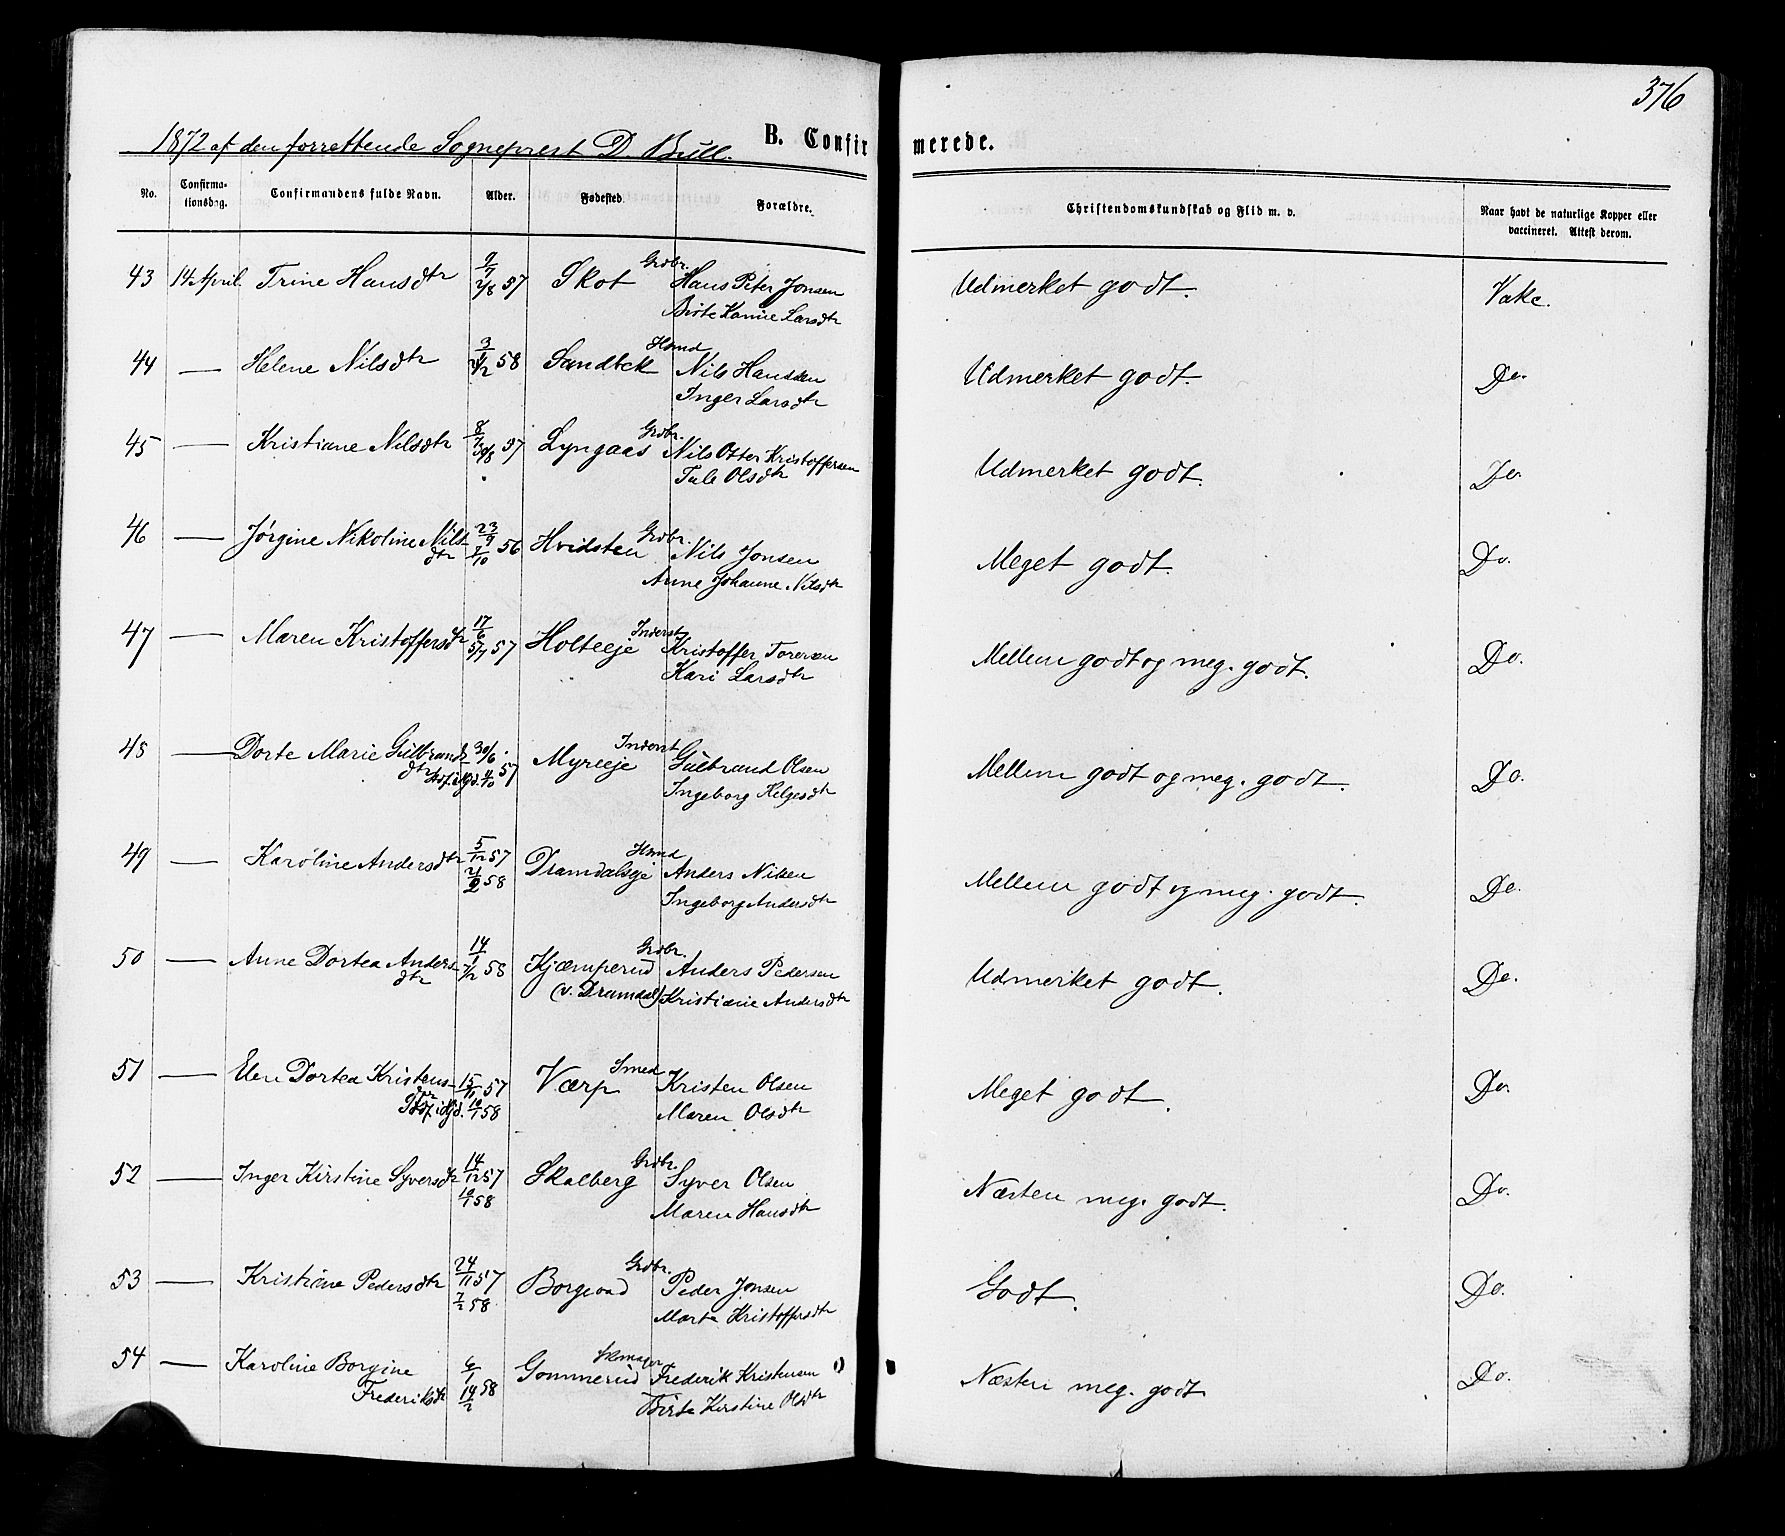 376
1872 af den forrettende Sogneprest D. Bull.
B. Confirmerede.
No. Confirmationsdag. Confirmandens fulde Navn. Alder. Fødested. Forældre. Christendomskundskab og Flid m. v. Naar havt de naturlige Kopper eller vaccineret. Attest derom.
43 14 April Trine Hansdtr 2/7 2/8 57 Skot Grdbr. Hans Peter Jonsen Udmerket godt. Vakc.
Birte Karine Larsdtr
44 — Helene Nilsdtr 3/ 21/2 58 Sandbek Hsmd Nils Hansen Udmerket godt. Do.
Inger Larsdtr
45 — Kristiane Nilsdtr 8/7 30/8 57 Lyngaas Grdbr. Nils Otter Kristoffersen Udmerket godt. Do.
Tale Olsdtr
46 — Jørgine Nikoline Nils- 23/9 7/10 56 Hvidsten Grdbr. Nils Jonsen Meget godt. Do.
dtr Anne Johanne Nilsdtr
47 — Maren Kristoffersdtr 17/6 5/7 57 Holteeje Inderst Kristoffer Toresen Mellem godt og meg. godt. Do.
Kari Larsdtr
48 — Dorte Marie Gulbrands- 30/6 4/10 57 Myreeje Inderst Gulbrand Olsen Mellem godt og meg. godt. Do.
dtr Ingeborg Helgesdtr
49 — Karoline Andersdtr 5/12 57 Dramdalseje Hsmd Anders Nilsen Mellem godt og meg. godt. Do.
21/2 58 Ingeborg Andersdtr
50 — Anne Dortea Anders- 14/1 7/2 58 Kjæmperud Grdbr. Anders Pedersen Udmerket godt. Do.
dtr (v. Dramdal) Kristiane Andersdtr
51 — Elen Dortea Kristens- 15/11 57 Værp Smed Kristen Olsen Meget godt. Do.
dtr 10/1 58 Maren Olsdtr
52 — Inger Kirstine Syversdtr 14/12 57 Skalberg Grdbr. Syver Olsen Næsten meg. godt. Do.
10/1 58 Maren Hansdtr
53 — Kristiane Pedersdtr 24/11 57 Grdbr. Peder Jonsen Godt. Do.
7/2 58 Marte Kristoffersdtr
54 — Karoline Borgine 6/1 Gommerud Skmager Frederik Kristensen Næsten meg. godt Do.
Frederiksdtr 14/2 58 Birte Kirstine Olsdtr